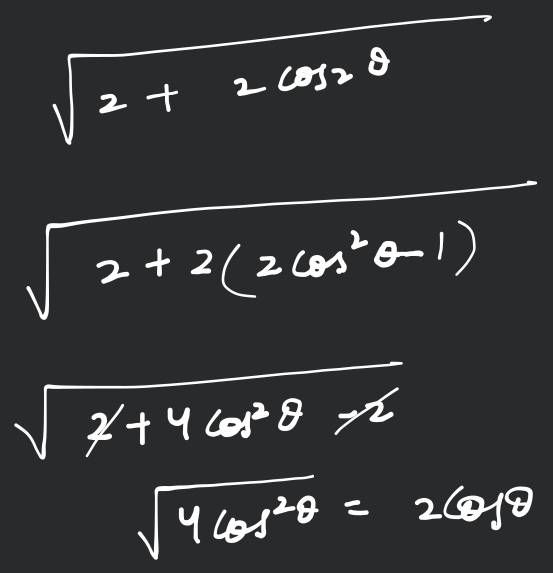 √2 + 2 cos2 θ
√2 + 2(2 cos² θ-1)
√2 + 4 cos² θ -2
√4 cos²θ = 2cosθ